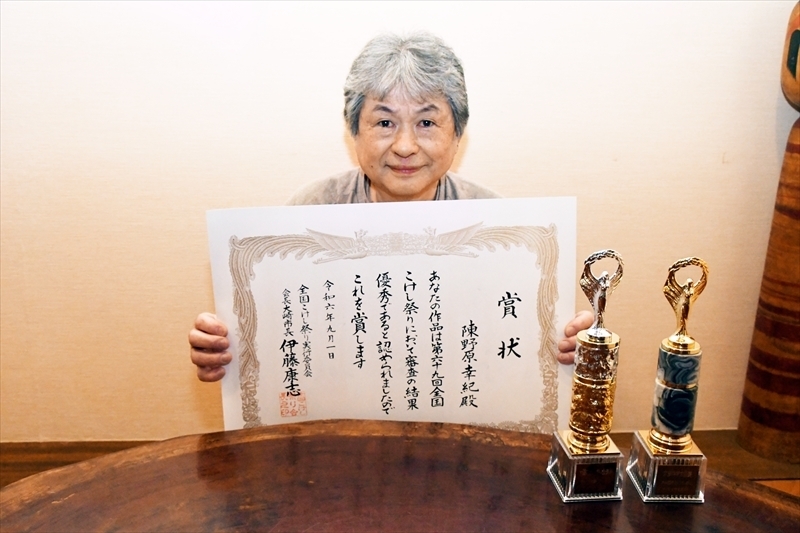 賞状
陳野原幸紀殿
あなたの作品は第六十九回全国
こけし祭りにおいて審査の結果
優秀であると認められましたので
これを賞します
令和六年九月一日
全国こけし祭り実行委員会
会長大崎市長 伊藤康志